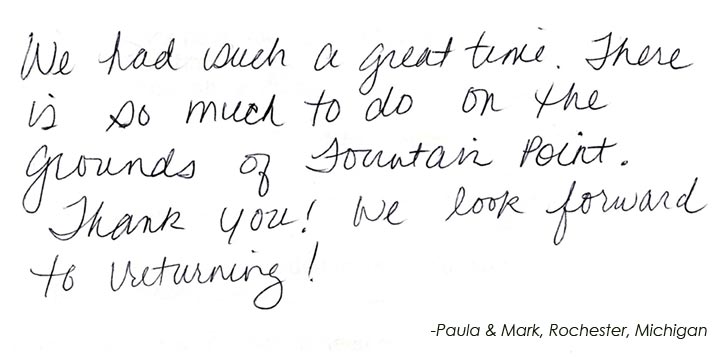 We had such a great time. There
is so much to do on the
grounds of Fountain Point.
Thank you! We look forward
to returning!
-Paula & Mark, Rochester, Michigan